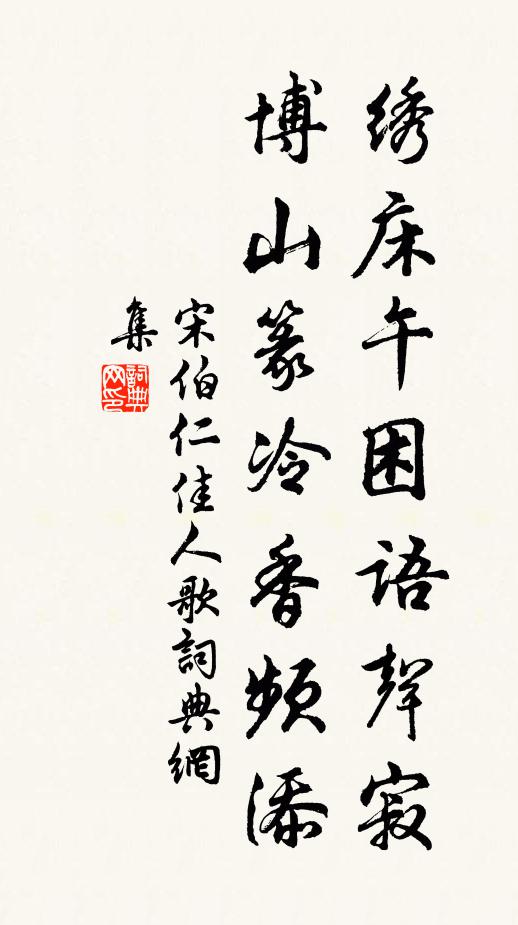 绣床午困语聲寂
博山篆冷香频添
宋伯仁佳人歌詞典網
集
詞典
网印